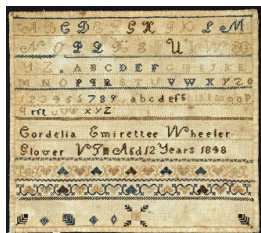 A B C D E F G H I J K L M
N O P Q R S T U V W X Y Z
A B C D E F G H I J K L
M N O P Q R S T U V W X Y Z
1 2 3 4 5 6 7 8 9 a b c d e f
q r s t u v w x y z
Cordelia Emirettee Wheeler
Glover VT Aged 12 Years 1848